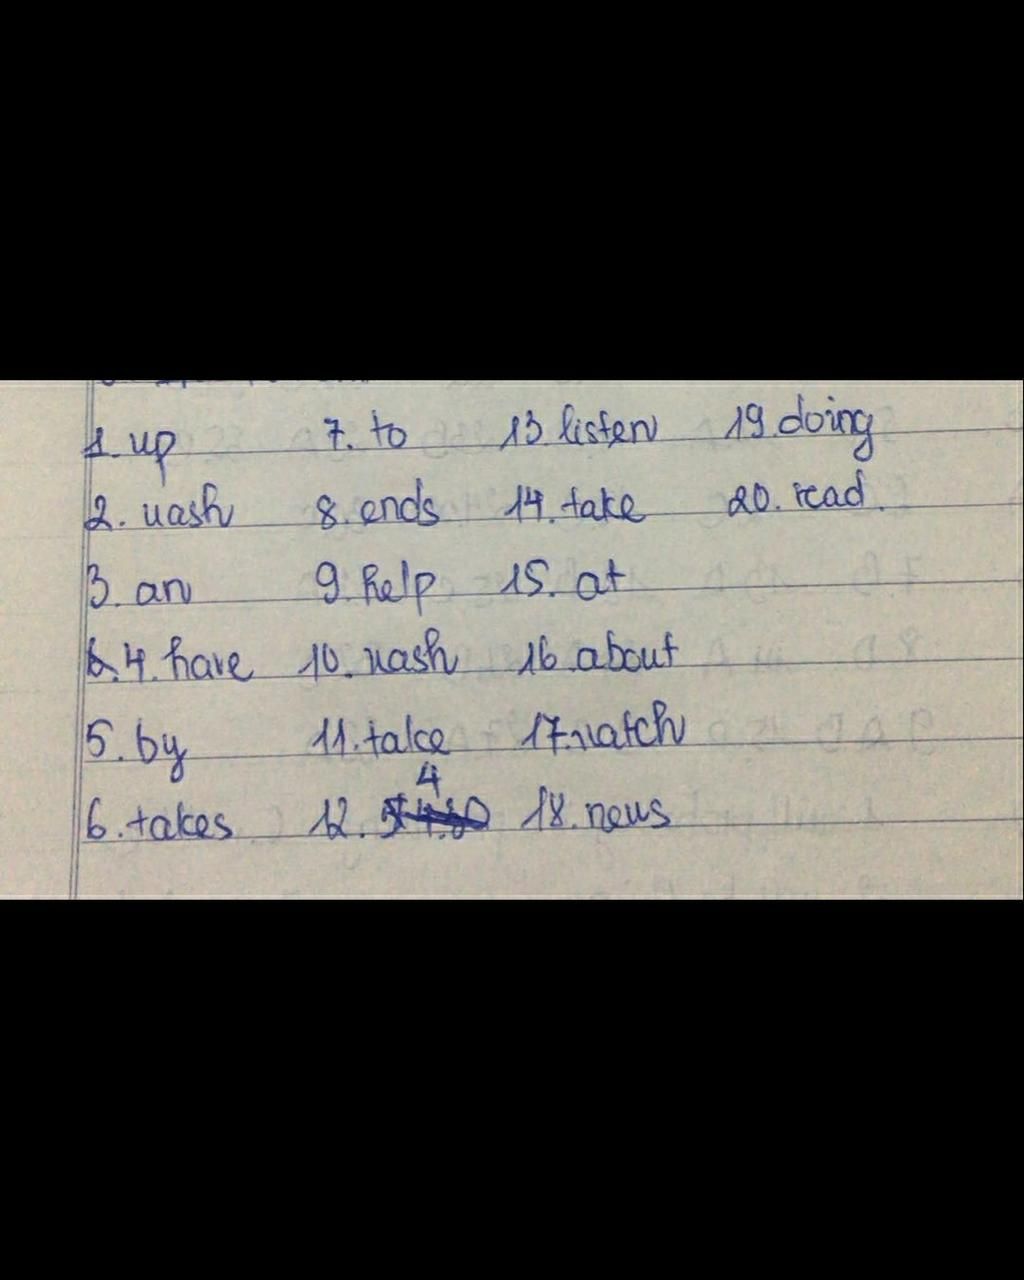 1. up 7. to 13. listen 19. doing
2. wash 8. ends 14. take 20. read.
3. an 9. help 15. at
4. have 10. wash 16. about
5. by 11. take 17. watch
6. takes 12. 4 18. news